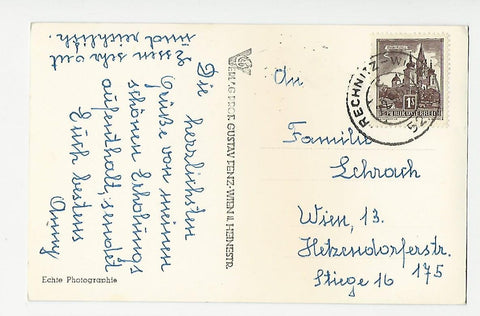 Die herzlichsten
Grüße von meinen
schönen Erholungs
aufenthalt, sendet
Euch bestens
Anny
Essen sehr gut
und reichlich.
Echte Photographie
VERLAG PROF. GUSTAV FENZ-WIEN II. HEINESTR.
RECHNITZ
1S
REPUBLIK ÖSTERREICH
An
Familie
Schrach
Wien, 13.
Hetzendorferstr.
175
Stiege 16